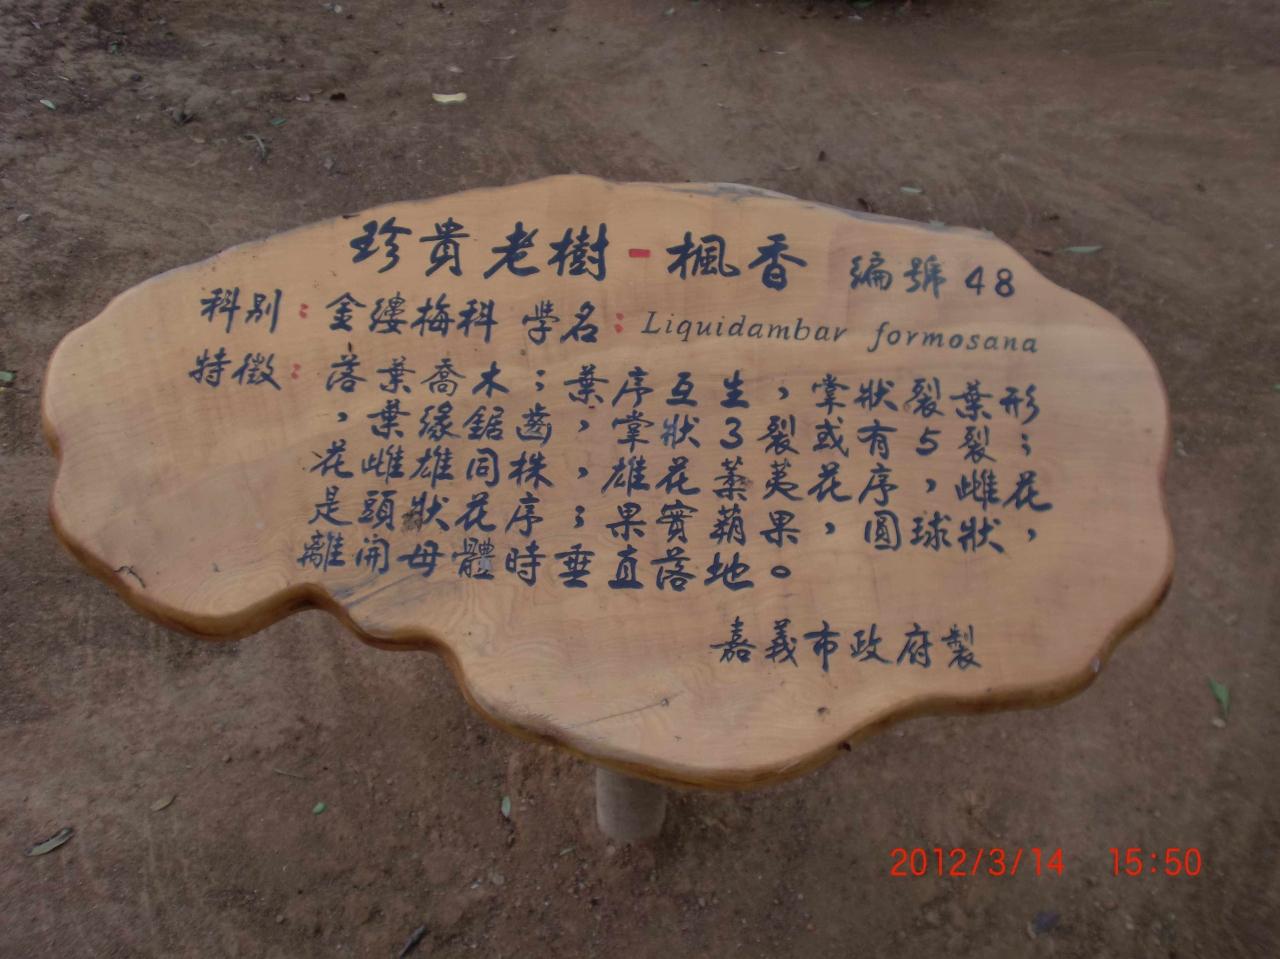 珍貴老樹-楓香 編號48
科別：金縷梅科 學名：Liquidambar formosana
特徵：落葉喬木；葉序互生，掌狀裂葉形
，葉緣鋸齒，掌狀3裂或有5裂；
花雌雄同株，雄花葇荑花序，雌花
是頭狀花序；果實蒴果，圓球狀，
離開母體時垂直落地。
嘉義市政府製
2012/3/14 15:50